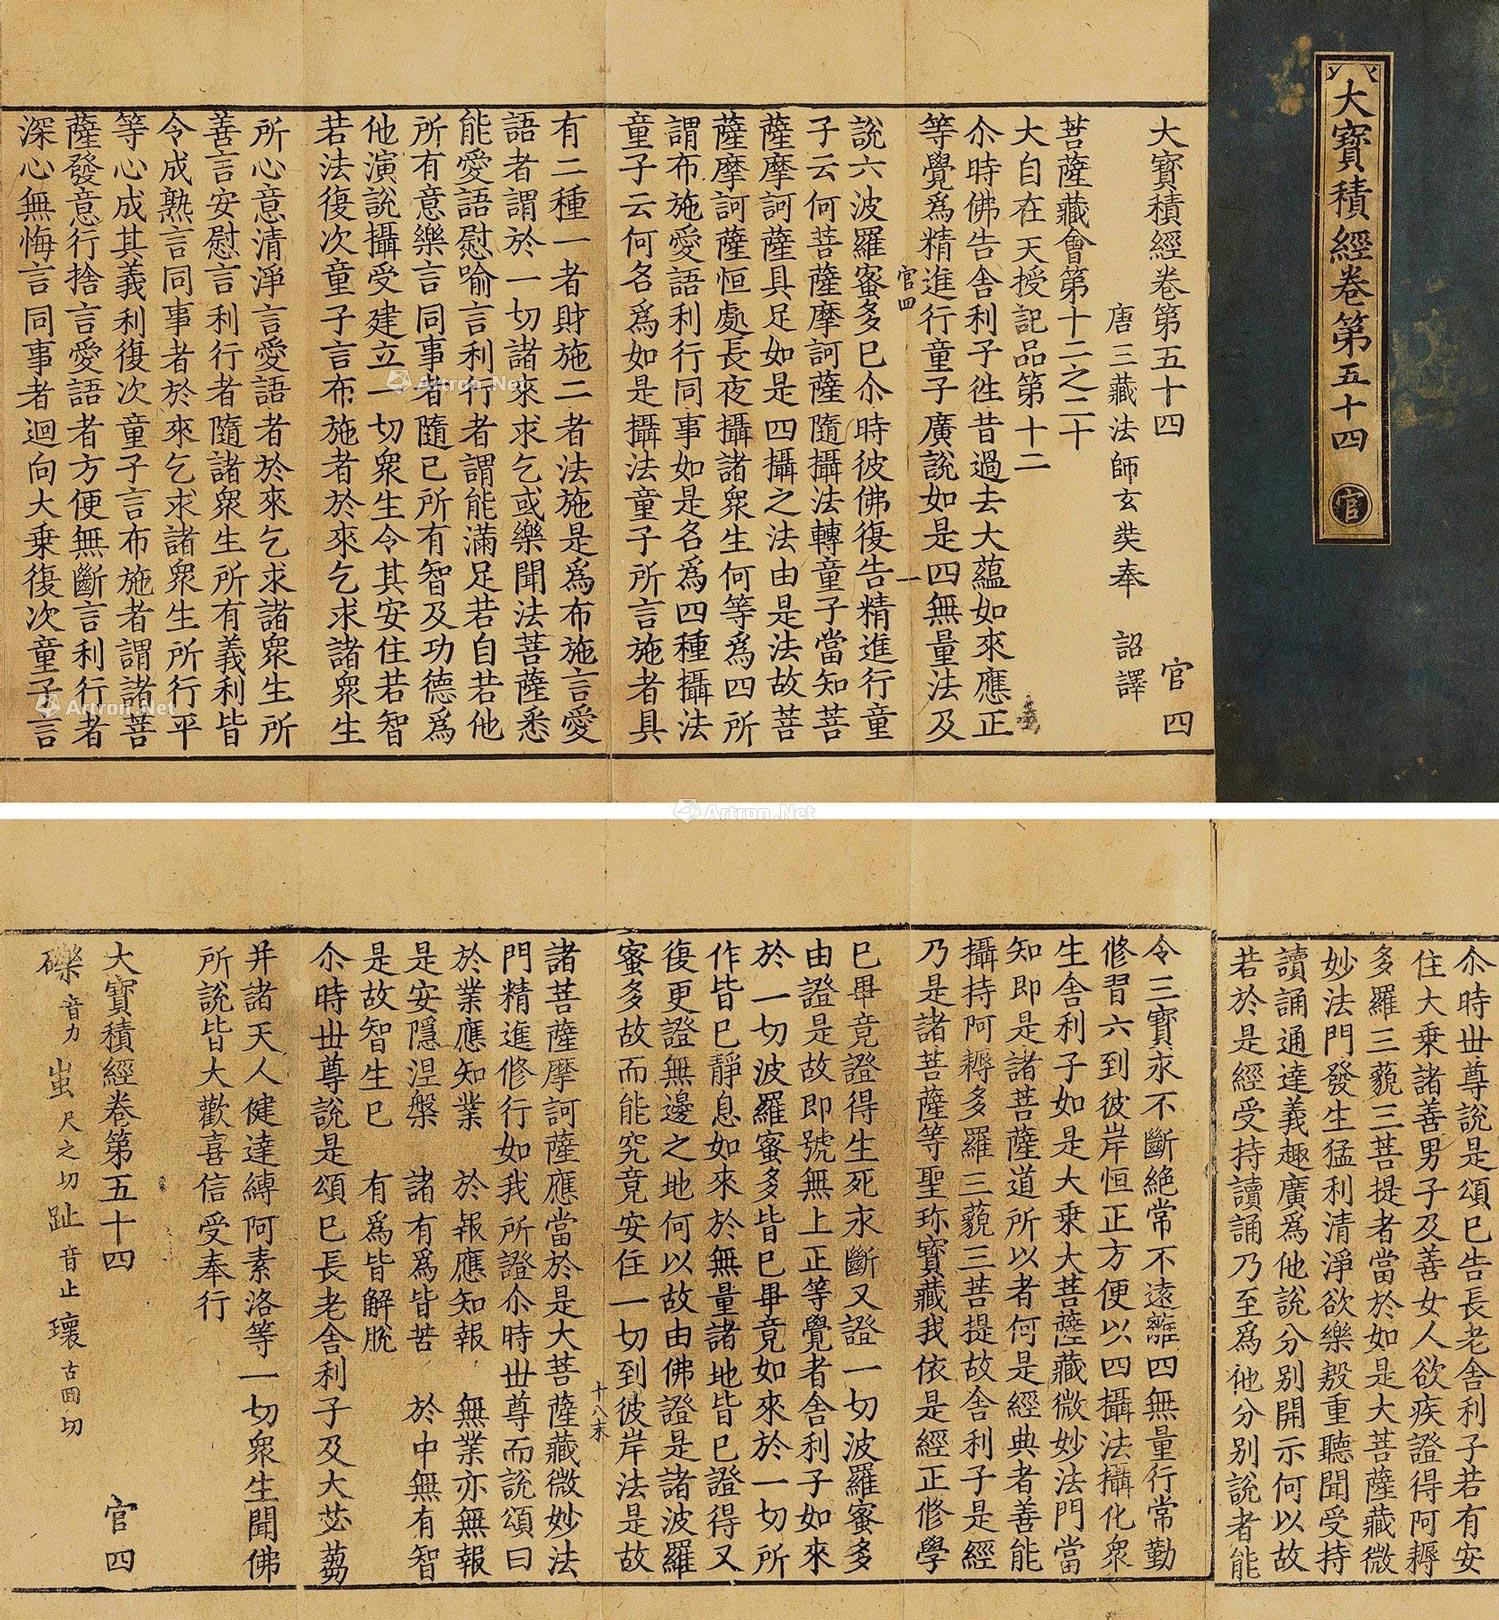 大寳積經卷第五十四 官
大寳積經卷第五十四 官四
唐三藏法師玄奘奉 詔譯
菩薩藏會第十二之二十
大自在天授記品第十二
尒時佛告舍利子徃昔過去大蘊如來應正
等覺爲精進行童子廣說如是四無量法及
官四 一
說六波羅蜜多已尒時彼佛復告精進行童
子云何菩薩摩訶薩隨攝法轉童子當知菩
薩摩訶薩具足如是四攝之法由是法故菩
薩摩訶薩恒處長夜攝諸衆生何等爲四所
謂布施愛語利行同事如是名爲四種攝法
童子云何名爲如是攝法童子所言施者具
有二種一者財施二者法施是爲布施言愛
語者謂於一切諸來求乞或樂聞法菩薩悉
能愛語慰喻言利行者謂能滿足若自若他
所有意樂言同事者隨已所有智及功德爲
他演說攝受建立一切衆生令其安住若智
若法復次童子言布施者於來乞求諸衆生
所心意清淨言愛語者於來乞求諸衆生所
善言安慰言利行者隨諸衆生所有義利皆
令成熟言同事者於來乞求諸衆生所行平
等心成其義利復次童子言布施者謂諸菩
薩發意行捨言愛語者方便無斷言利行者
深心無悔言同事者迴向大乗復次童子言
尒時丗尊說是頌已告長老舍利子若有安
住大乗諸善男子及善女人欲疾證得阿耨
多羅三藐三菩提者當於如是大菩薩藏微
妙法門發生猛利清淨欲樂慇重聽聞受持
讀誦通達義趣廣爲他說分别開示何以故
若於是經受持讀誦乃至爲他分别說者能
令三寳永不斷絶常不遠離四無量行常勤
修習六到彼岸恒正方便以四攝法攝化衆
生舍利子如是大乗大菩薩藏微妙法門當
知即是諸菩薩道所以者何是經典者善能
攝持阿耨多羅三藐三菩提故舍利子是經
乃是諸菩薩等聖珎寳藏我依是經正修學
已畢竟證得生死永斷又證一切波羅蜜多
由證是故即號無上正等覺者舍利子如來
於一切波羅蜜多皆已畢竟如來於一切所
作皆已靜息如來於無量諸地皆已證得又
復更證無邊之地何以故由佛證是諸波羅
蜜多故而能究竟安住一切到彼岸法是故
十八末
諸菩薩摩訶薩應當於是大菩薩藏微妙法
門精進修行如我所證尒時丗尊而說頌曰
於業應知業 於報應知報 無業亦無報
是安隱涅槃 諸有爲皆苦 於中無有智
是故智生已 有爲皆解脫
尒時丗尊說是頌已長老舍利子及大苾蒭
并諸天人健達縛阿素洛等一切衆生聞佛
所說皆大歡喜信受奉行
大寳積經卷第五十四 官四
礫音力 蚩尺之切 趾音止 瓌古回切
Artron.Net
Artron.Net
Artron.Net